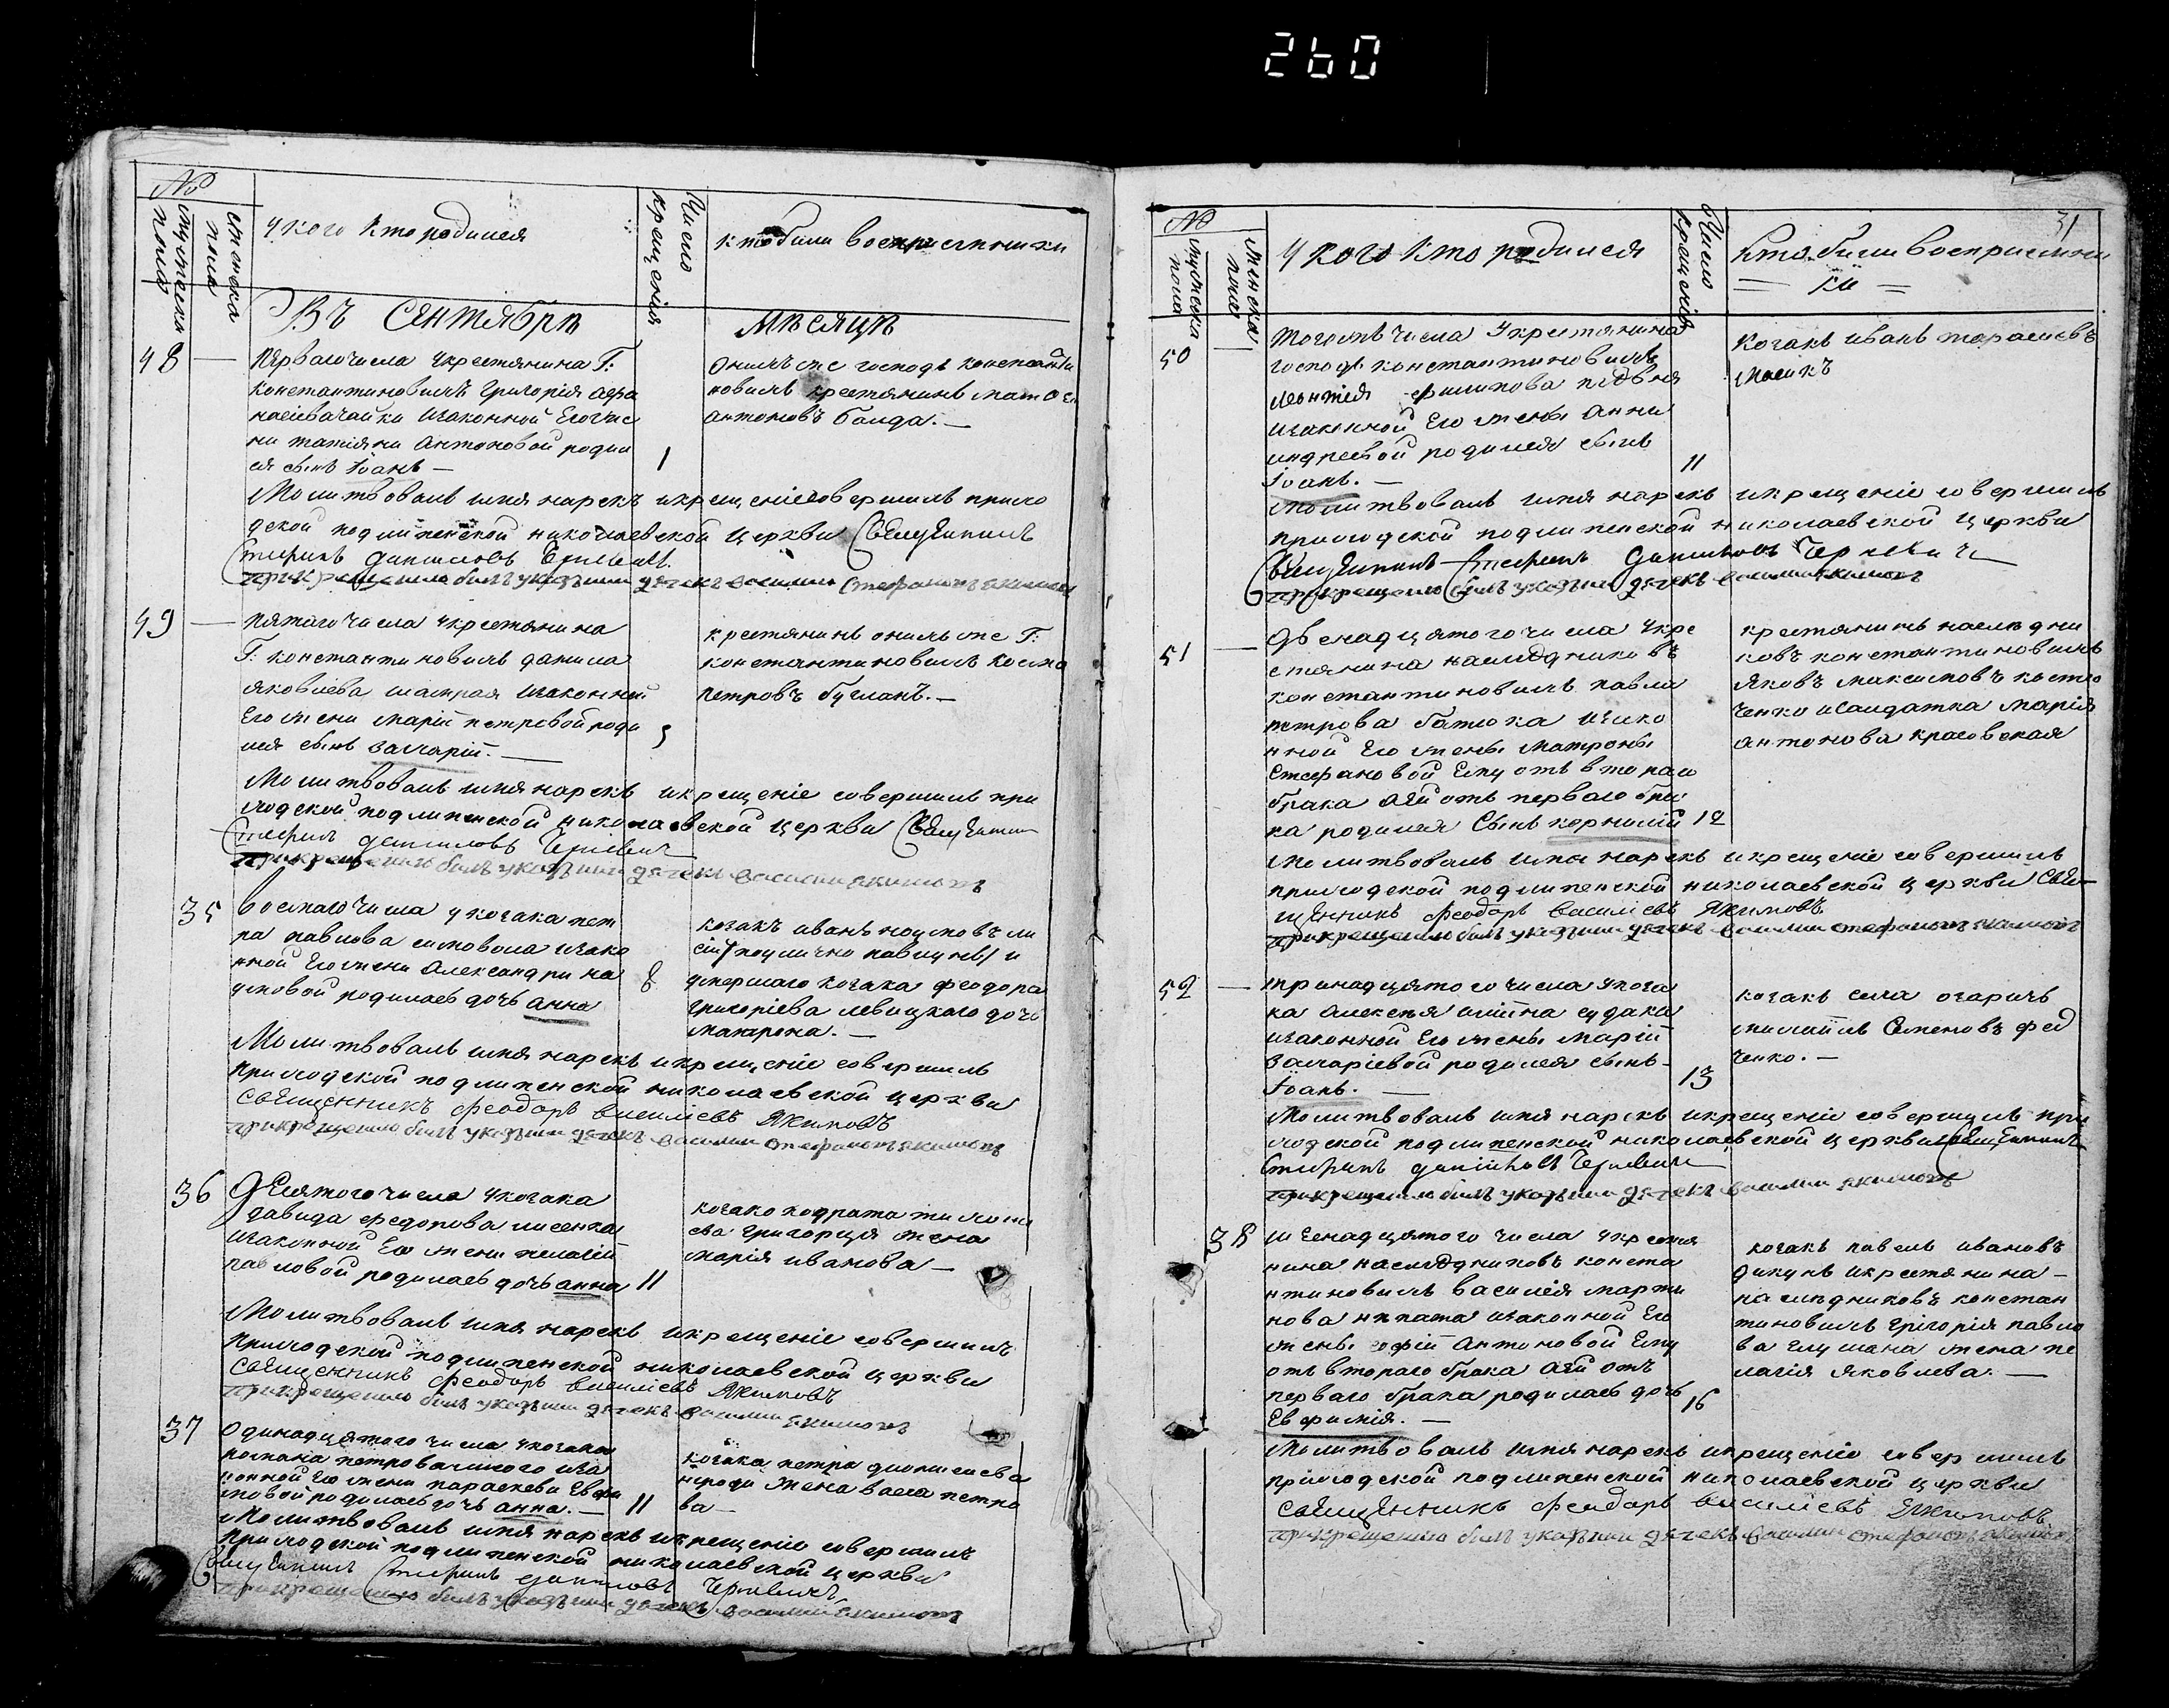 260
№
мужеска пола
женска пола
У кого кто родился
Число крещенія
кто били восприемники
Въ Сентябрѣ Мѣсяцѣ
48
Перваго числа укрестянина Г:
Константиновичъ Григорія Афа
насіева изаконной Егожѣ
ни татіяни Антоновой роди
ся сынъ Іоанъ —
1
онихъ же господъ константи
новичъ крестянинъ
антоновъ балда. —
Молитвовалъ имя нарекъ икрещеніе совершилъ прихо
дской подлипенской николаевской церкви Священникъ
Стефанъ Даниловъ
прикрещенію билъ указний дячекъ василий Стефановъ якимовъ
49
пятаго числа укрестянина
Г: константиновичъ данила
яковлева изаконной
Его жени маріи петровой роди
лся сынъ захарій. —
5
крестянинъ онихъ же Г:
константиновичъ косма
петровъ бугланъ. —
Молитвовалъ имя нарекъ икрещеніе совершилъ при
ходской подлипенской николаевской церкви Священникъ
Стефанъ даниловъ
прикрещенію билъ указний дячекъ василий якимовъ
35
восмаго числа укозака пет
ра павлова изако
нной Его жени Александри на
умовой родилась дочь анна
8
козакъ иванъ наумовъ ли
сій поулично павлунь и
умершаго козака феодора
григоріева левицкаго дочь
матрона. —
Молитвовалъ имя нарекъ икрещеніе совершилъ
приходской подлипенской николаевской церкви
священникъ Феодоръ василіевъ Якимовъ
прикрещенію билъ указний дячекъ василий стефановъ якимовъ
36
Десятого числа укозака
давида федорова лисенка
изаконной Его жени пелагіи
павловой родилась дочь анна
11
козака кодрата тимофи
ева григорця жена
марія иванова —
Молитвовалъ имя нарекъ икрещеніе совершилъ
приходской подлипенской николаевской церкви
священникъ Феодоръ василіевъ Якимовъ
прикрещенію билъ указний дячекъ василий якимовъ
37
Одинадцятого числа укозака
романа петрова иза
конной Его жени параскеви Ефи
мовой родилась дочь анна. —
11
козака петра дионисиева
жена васса петро
ва —
Молитвовалъ имя нарекъ икрещеніе совершилъ
приходской подлипенской николаевской церкви
Священникъ Стефанъ даниловъ
прикрещенію билъ указний дячекъ василий якимовъ
31
№
мужеска пола
женска пола
У кого кто родился
Число крещенія
Кто били восприемни
— ки —
50
тогожъ числа Укрестянина
господъ константиновичъ
леонтія филипова
изаконной Его жены анни
андреевой родился сынъ
Іоанъ. —
11
козакъ иванъ тарасиевъ
масикъ
Молитвовалъ имя нарекъ икрещеніе совершилъ
приходской подлипенской николаевской церкви
Священникъ Стефанъ Даниловъ
прикрещенію билъ указний дячекъ василий якимовъ
51
Двенадцятого числа укре
стянина наследниковъ
константиновичъ павла
петрова батюка изако
нной Его жены матроны
Стефановой Ему отъ втораго
брака аей отъ перваго бра
ка родился Сынъ корнилій
12
крестянинъ наследни
ковъ константиновичъ
Яковъ максимовъ костю
ченко исолдатка марія
антонова красовская
Молитвовалъ имя нарекъ икрещеніе совершилъ
приходской подлипенской николаевской церкви Свя
щенникъ Феодоръ василіевъ Якимовъ
прикрещенію билъ указний дячекъ василий стефановъ якимовъ
52
тринадцятого числа укоза
ка алексея судака
изаконной Его жены маріи
захаріевой родился сынъ
Іоанъ. —
13
козакъ села огаричъ
михаилъ Семеновъ фед
ченко. —
Молитвовалъ имя нарекъ икрещеніе совершилъ при
ходской подлипенской николаевской церкви Священникъ
Стефанъ даниловъ
прикрещенію билъ указний дячекъ василий якимовъ
38
шеснадцятого числа укрестя
нина наследниковъ конста
нтиновичъ василія марти
нова изаконной Его
жены софіи Антоновой Ему
отъ втораго брака аей отъ
перваго брака родилась дочь
Евфимія. —
16
козакъ павелъ ивановъ
дикунъ икрестянина —
наследниковъ констан
тиновичъ григорія павло
ва глушака жена пе
лагія Яковлева. —
Молитвовалъ имя нарекъ икрещеніе совершилъ
приходской подлипенской николаевской церкви
священникъ Феодоръ василіевъ Якимовъ
прикрещенію билъ указний дячекъ василий стефановъ якимовъ